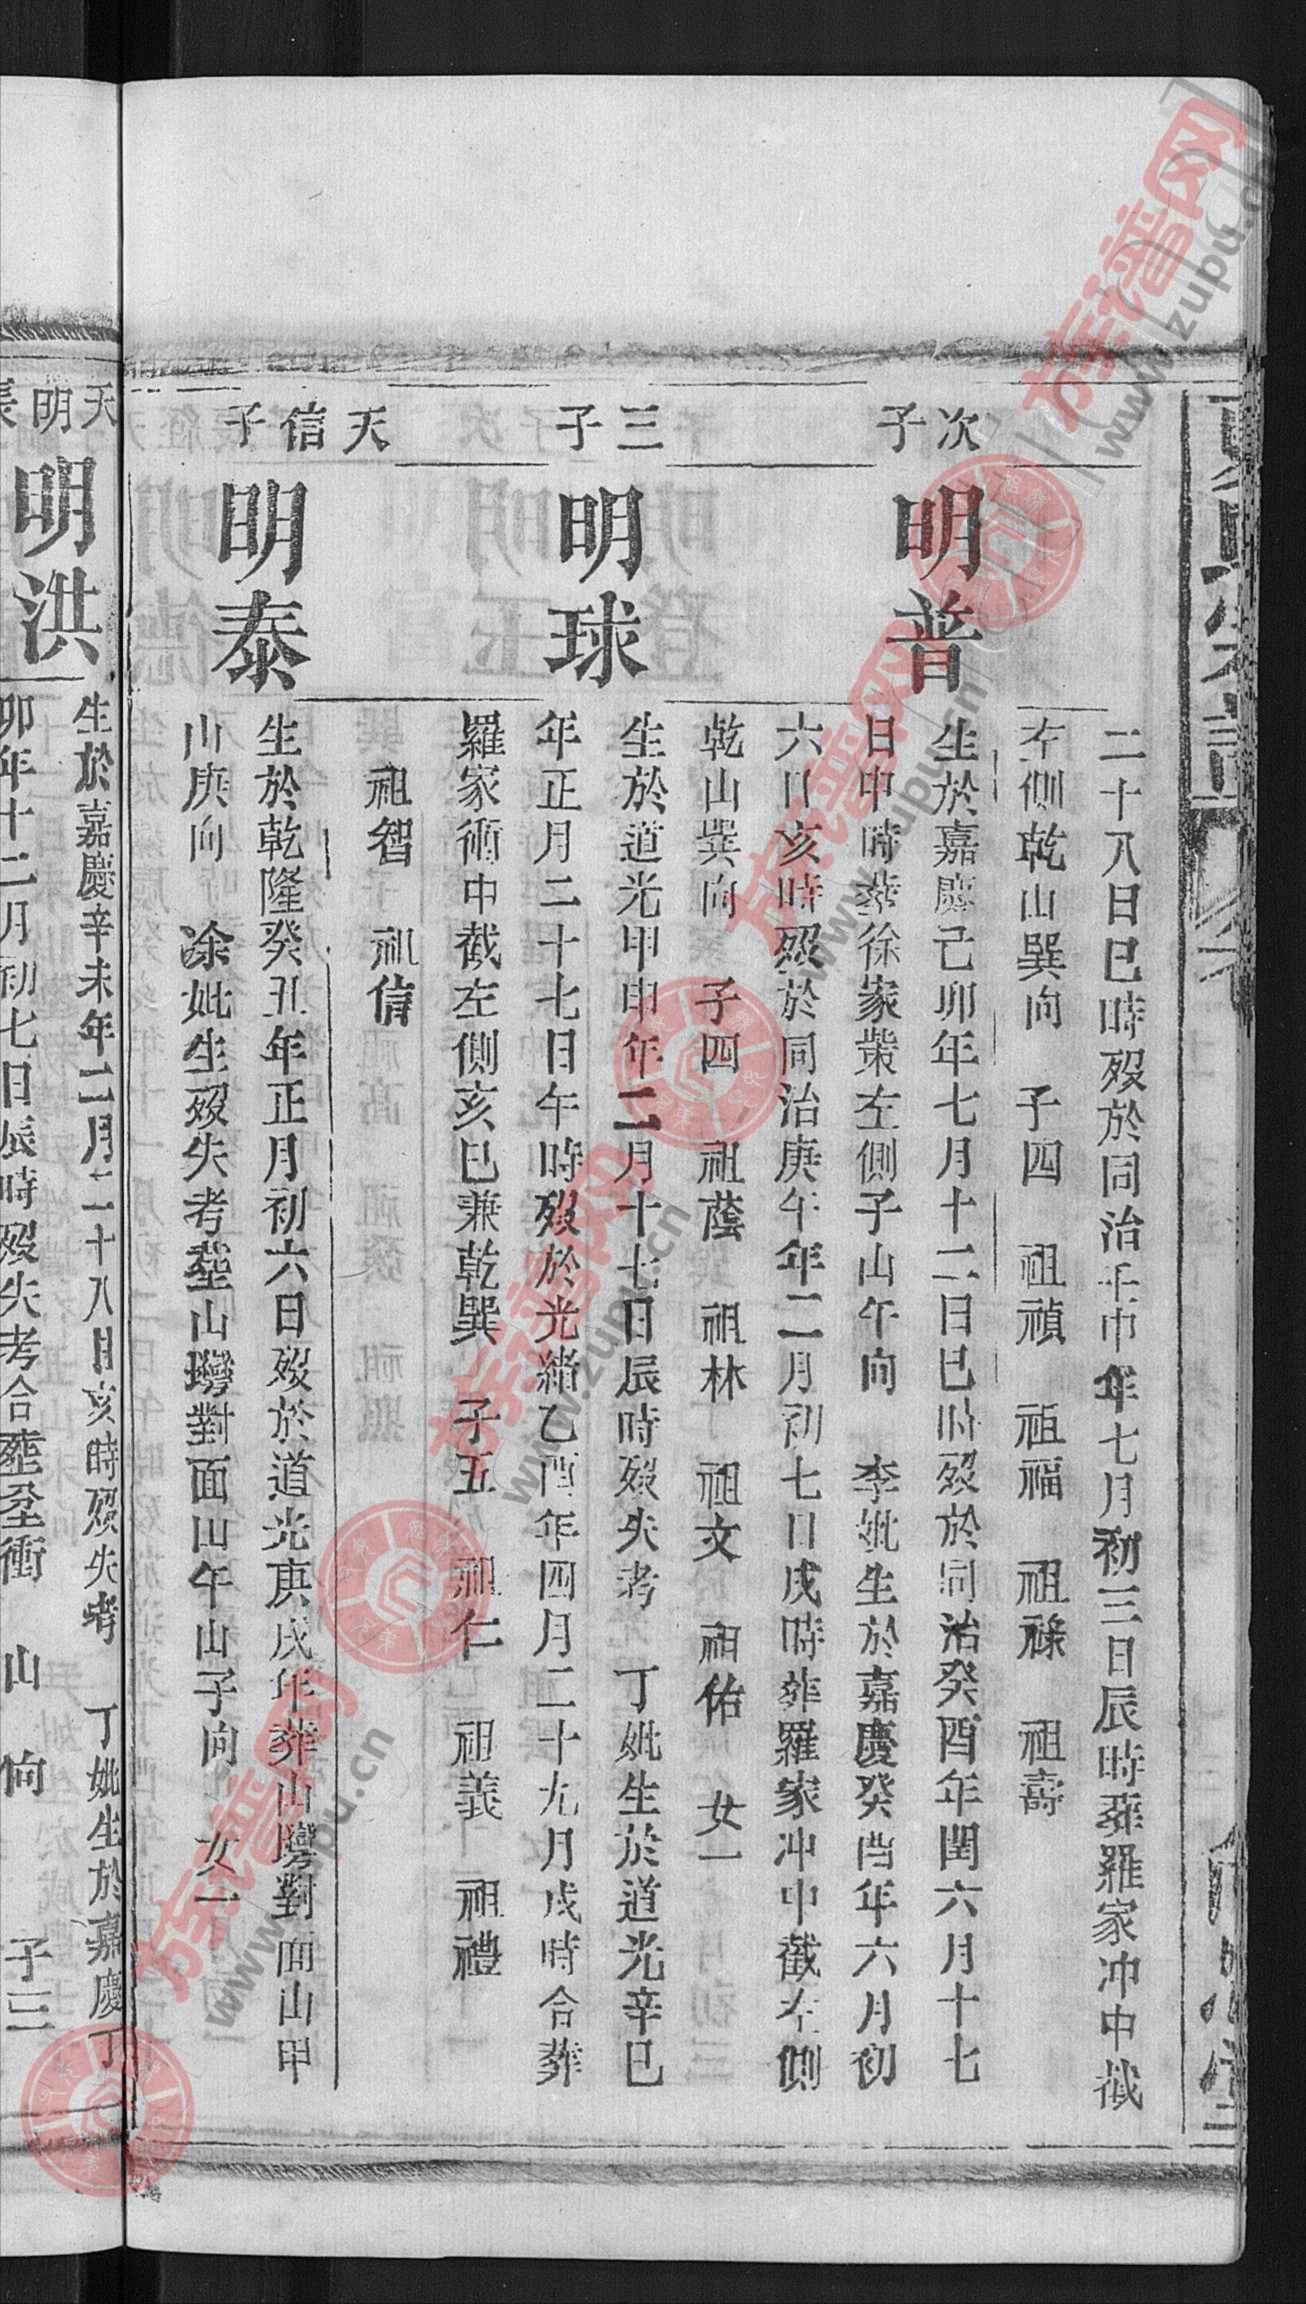 二十八日巳時歿於同治壬申年七月初三日辰時葬羅家冲中截
左側乾山巽向 子四 祖禎 祖福 祖祿 祖壽
次子
明普
生於嘉慶己卯年七月十二日巳時歿於同治癸酉年閏六月十七
日申時葬徐家 左側子山午向 李妣生於嘉慶癸酉年六月初
六日亥時歿於同治庚午年二月初七日戌時葬羅家冲中截左側
乾山巽向 子四 祖蔭 祖林 祖文 祖佑 女一
三子
明球
生於道光甲申年二月十七日辰時歿失考 丁妣生於道光辛巳
年正月二十七日午時歿於光緒乙酉年四月二十九月戌時合葬
羅家術中截左側亥巳兼乾巽 子五 祖仁 祖義 祖禮
祖智 祖信
天信子
明泰
生於乾隆癸丑年正月初六日歿於道光庚戌年葬山灣對面山甲
山庚向 涂妣生歿失考塟山灣對面山午山子向 女一
天明長
明洪
生於嘉慶辛未年二月二十八日亥時歿失考 丁妣生於嘉慶丁
卯年十二月初七日辰時歿失考合塟 衝 山 向 子三
族谱网
www.zupu.cn
族谱网
www.zupu.cn
族谱网
www.zupu.cn
族谱网
www.zupu.cn